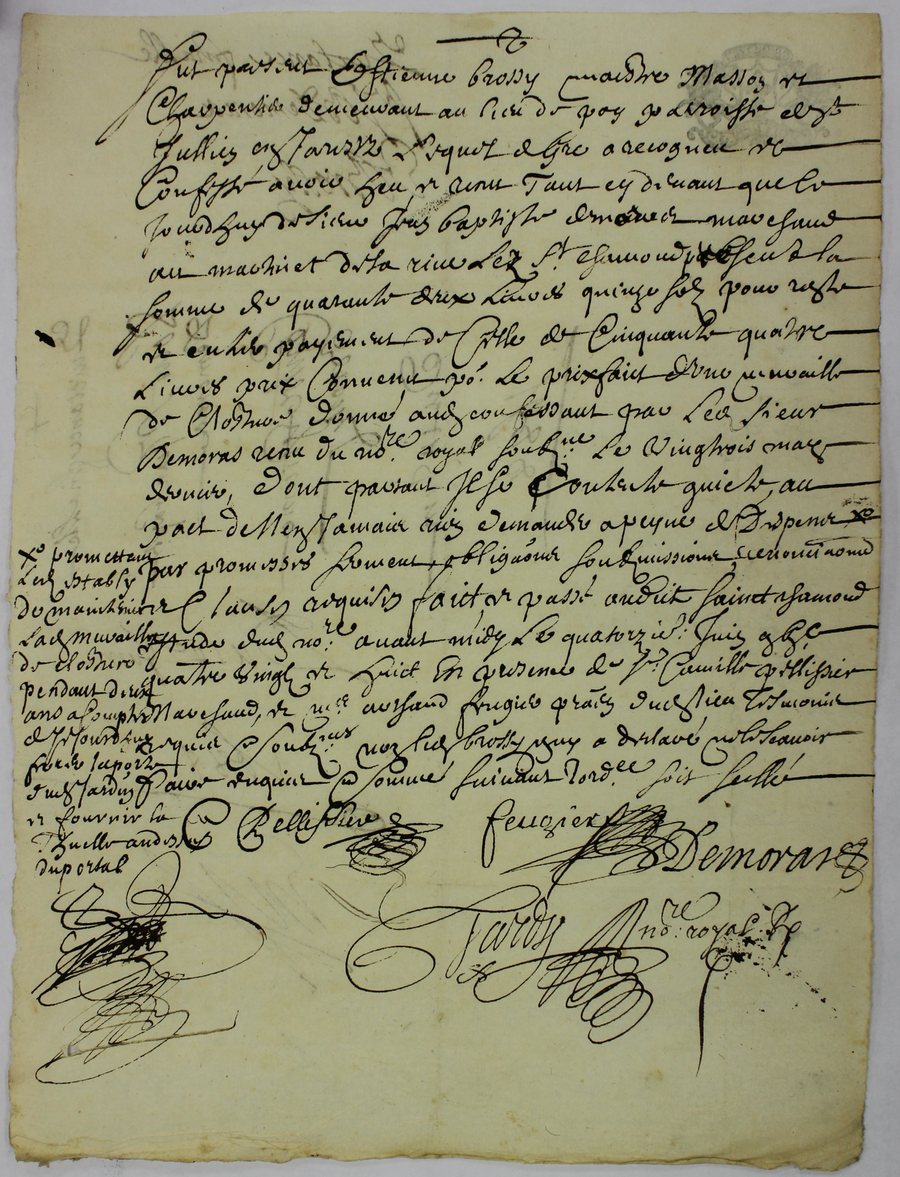 Fut present Estienne brossy maistre Masson et
Charpentier demeurant au lieu de poy parroisse de St
Jullien en Jarestz Lequel de gre a recogneu et
Confessé avoir heu et receu Tant cy devant que ce
jourdhuy de sieur Jean baptiste demoras marchand
au martinet de la rive Lez St chamond présent La
somme de quarante deux Livres quinze solz pour reste
et entier payement de Celle de Cinquante quatre
Livres prix Convenu po.r Le prixfait dune muraille
de Closture donné aud confessant par Led sieur
Demoras receu du no.re royal soub.ne Le vingtrois mars
dernier, dont partant Il se Contente quicte, au
pact de Nen jamais rien demander a peyne de Despens xo
par promesses serment obliga͠ons soubmissions, renonciaons
et Clauses requises faict et passé audit sainct chamond
estude dud no.re avant midy Le quatorzie.e Juin
quatre vingt et huict En presence de Sr. Camille pellissier
Marchand, et me. feugier pra͠en dud lieu Tesmoins
requis et soub.nes non led brossy qui a declaré ne le scavoir
faire enquis et sommé suivant lord.ce soit scellé
xo promettant
Led Estably
de maintenir
Lad muraille
de closture
pendant deux
ans a compter
de ce jourdhuy
fors la porte
dud Jardin
et fournir la
Thuelle au dessus
du portal
C Pellissier
feugier
Demoras
Tardy no.re royal